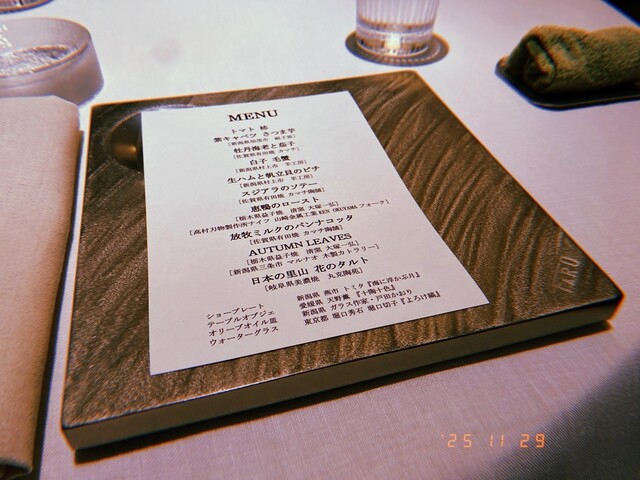 MENU
トマト 柿
紫キャベツ さつま芋
牡丹海老と茄子
[佐賀県有田焼 カマチ]
白子 毛蟹
[新潟県村上市 羊工房]
生ハムと帆立貝のピチ
[新潟県村上市 羊工房]
スジアラのソテー
[佐賀県有田焼 カマチ陶舗]
恵鴨のロースト
[栃木県益子焼 清窯 大塚一弘]
[高村刃物製作所ナイフ 山崎金属工業 KEN OKUYAMA フォーク]
放牧ミルクのパンナコッタ
[佐賀県有田焼 カマチ陶舗]
AUTUMN LEAVES
[栃木県益子焼 清窯 大塚一弘]
[新潟県三条市 マルナオ 木製カトラリー]
日本の里山 花のタルト
[岐阜県美濃焼 丸克陶苑]
ショープレート 新潟県 燕市 トミタ『海に浮かぶ月』
テーブルオブジェ 愛媛県 天野薫『十陶十色』
オリーブオイル皿 新潟県 ガラス作家・戸田かおり
ウォーターグラス 東京都 堀口秀石 堀口切子『よろけ縞』
TARO
'25 11 29